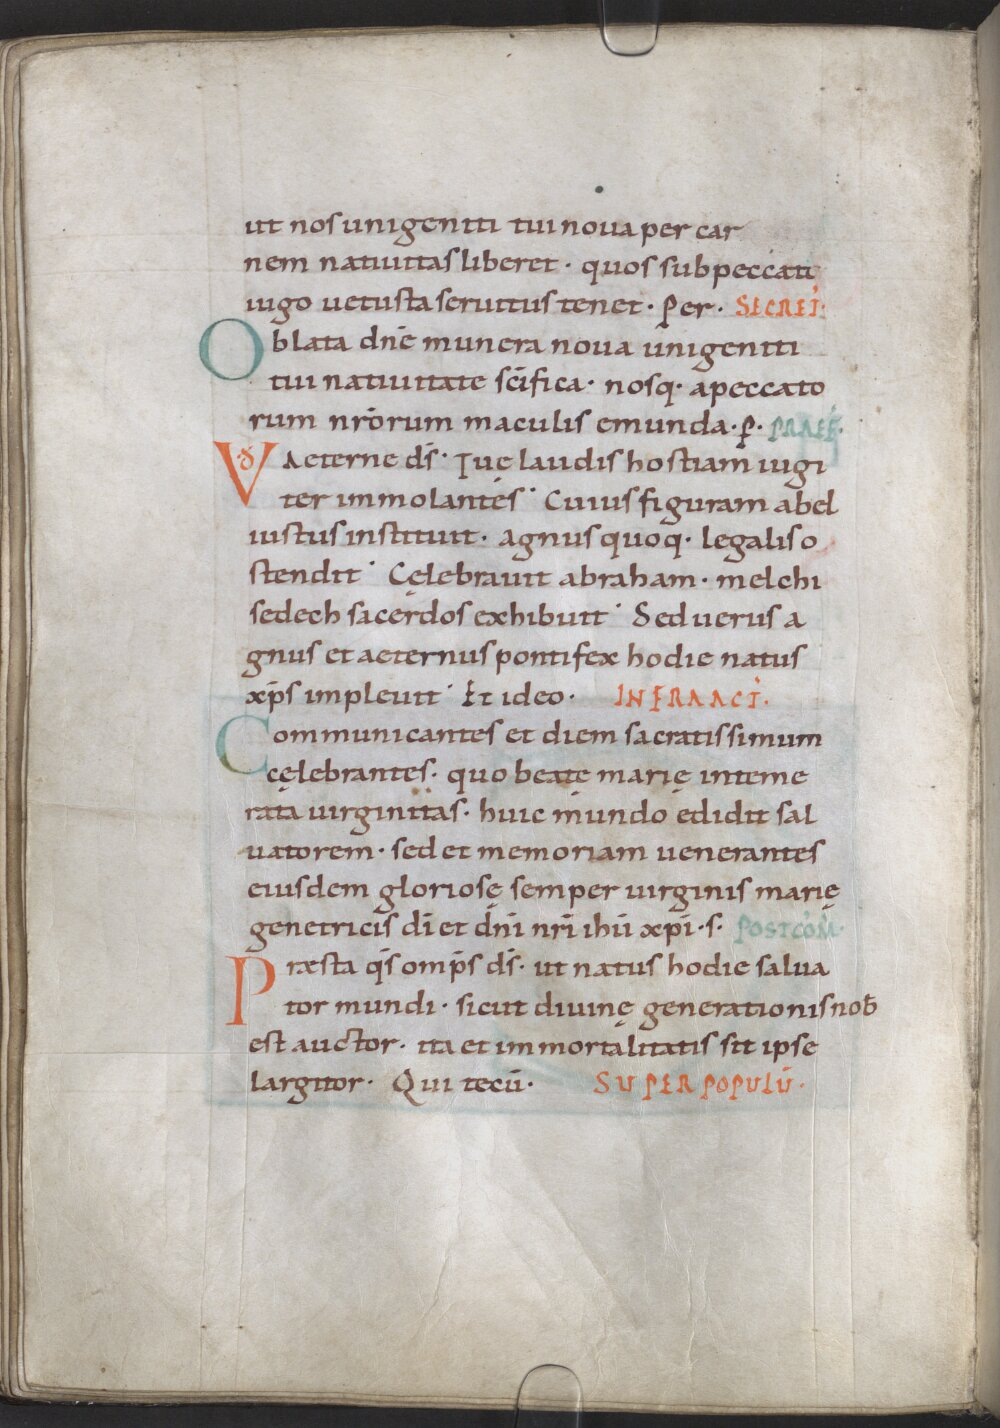 ut nos unigeniti tui noua per car
nem natiuitas liberet· quos sub peccati
iugo uetusta seruitus tenet· Per· SECRET·
Oblata dn̄e munera noua unigeniti
tui natiuitate sc̄ifica· nosq· a peccato
rum nr̄orum maculis emunda· p· PRAEF·
VD Aeterne ds̄· Tuę laudis hostiam iugi
ter immolantes· Cuius figuram abel
iustus instituit· agnus quoq· legalis o
stendit· Cęlebrauit abraham· melchi
sedech sacerdos exhibuit· Sed uerus a
gnus et aeternus pontifex hodie natus
xp̄s impleuit· Et ideo· INFRA ACT·
Communicantes et diem sacratissimum
cęlebrantes· quo beatę marię inteme
rata uirginitas· huic mundo edidit sal
uatorem· sed et memoriam uenerantes
eiusdem gloriosę semper uirginis marię
genetricis dī et dn̄i nr̄i ihū xp̄i· s· POSTCOM̄·
Præsta qs̄ omp̄s ds̄· ut natus hodie salua
tor mundi· sicut diuinę generationis nob̄
est auctor· ita et immortalitatis sit ipse
largitor· Qui tecū· SUPER POPULŪ·